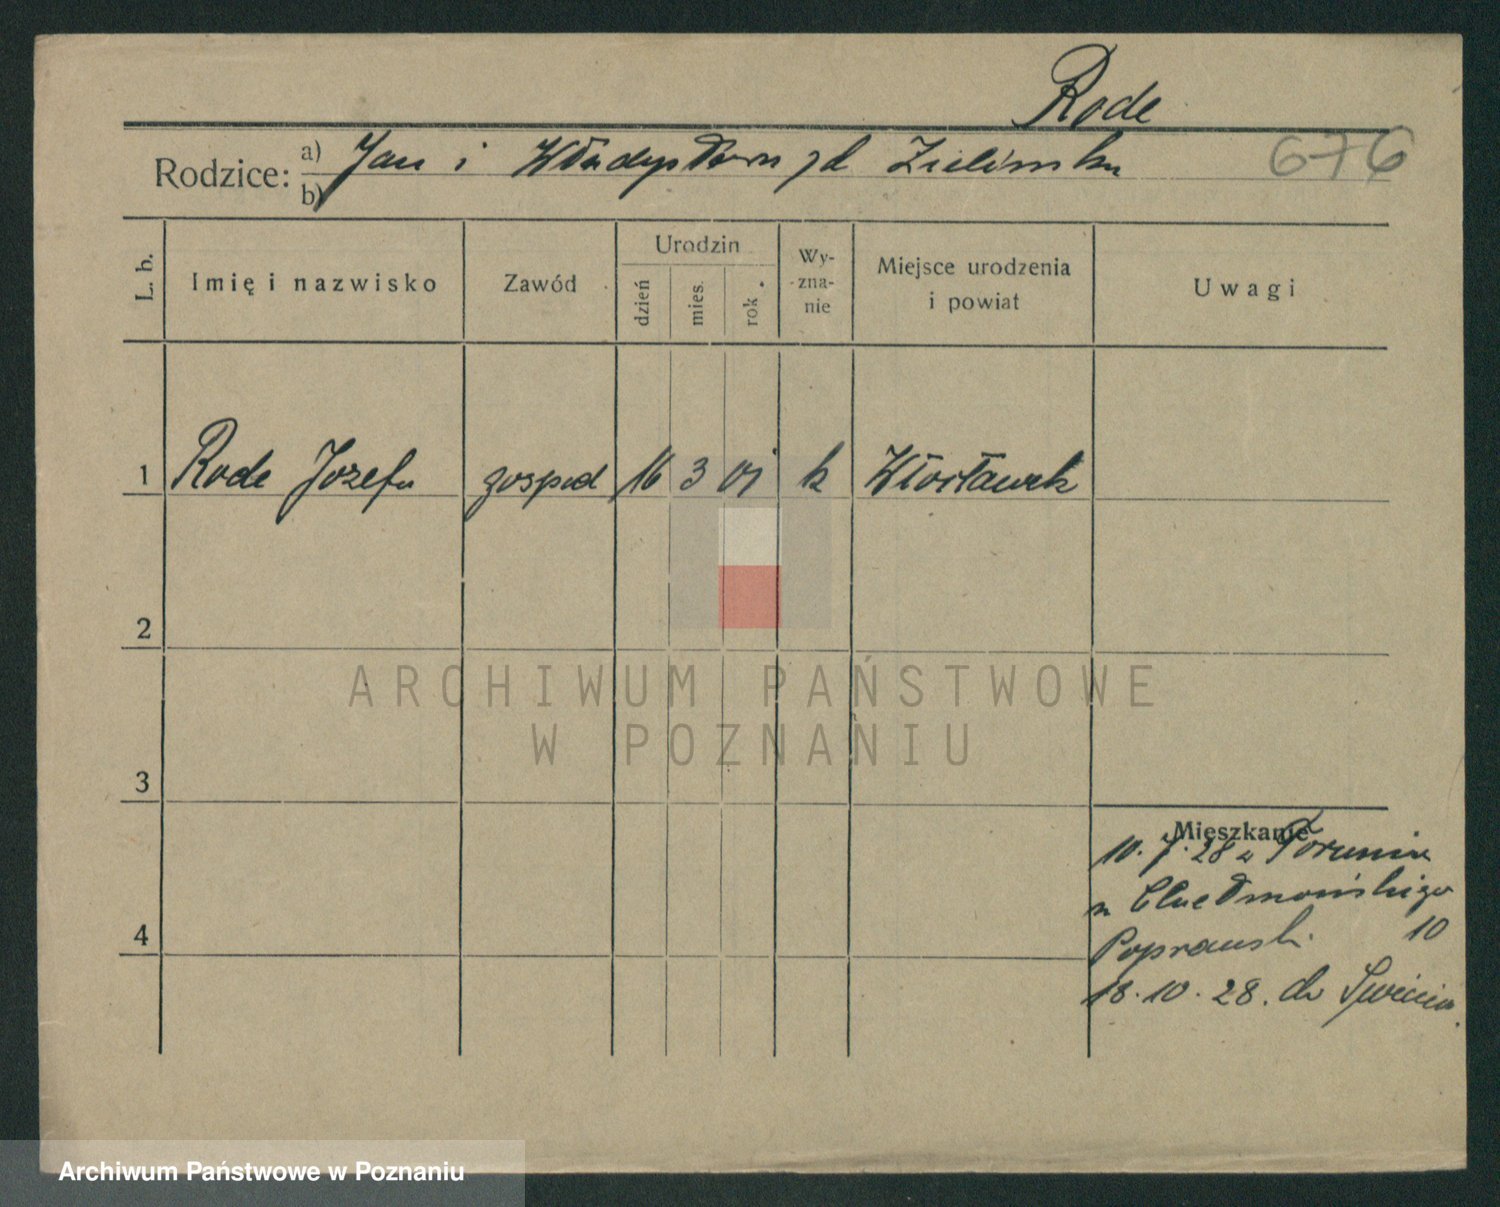 Rode
676
Rodzice:
a) Jan i Władysława zd Zielińska
b)
L. b.
Imię i nazwisko
Zawód
Urodzin
dzień
mies.
rok
Wy-
zna-
nie
Miejsce urodzenia
i powiat
Uwagi
1 Rode Jozefa gospod 16 3 01 k Włocławek
2
3
4
Mieszkanie
10. 7. 28 z Torunia
Chełmońskiego
Poprawski 10
18. 10. 28. do Swiecia.
ARCHIWUM PAŃSTWOWE
W POZNANIU
Archiwum Państwowe w Poznaniu